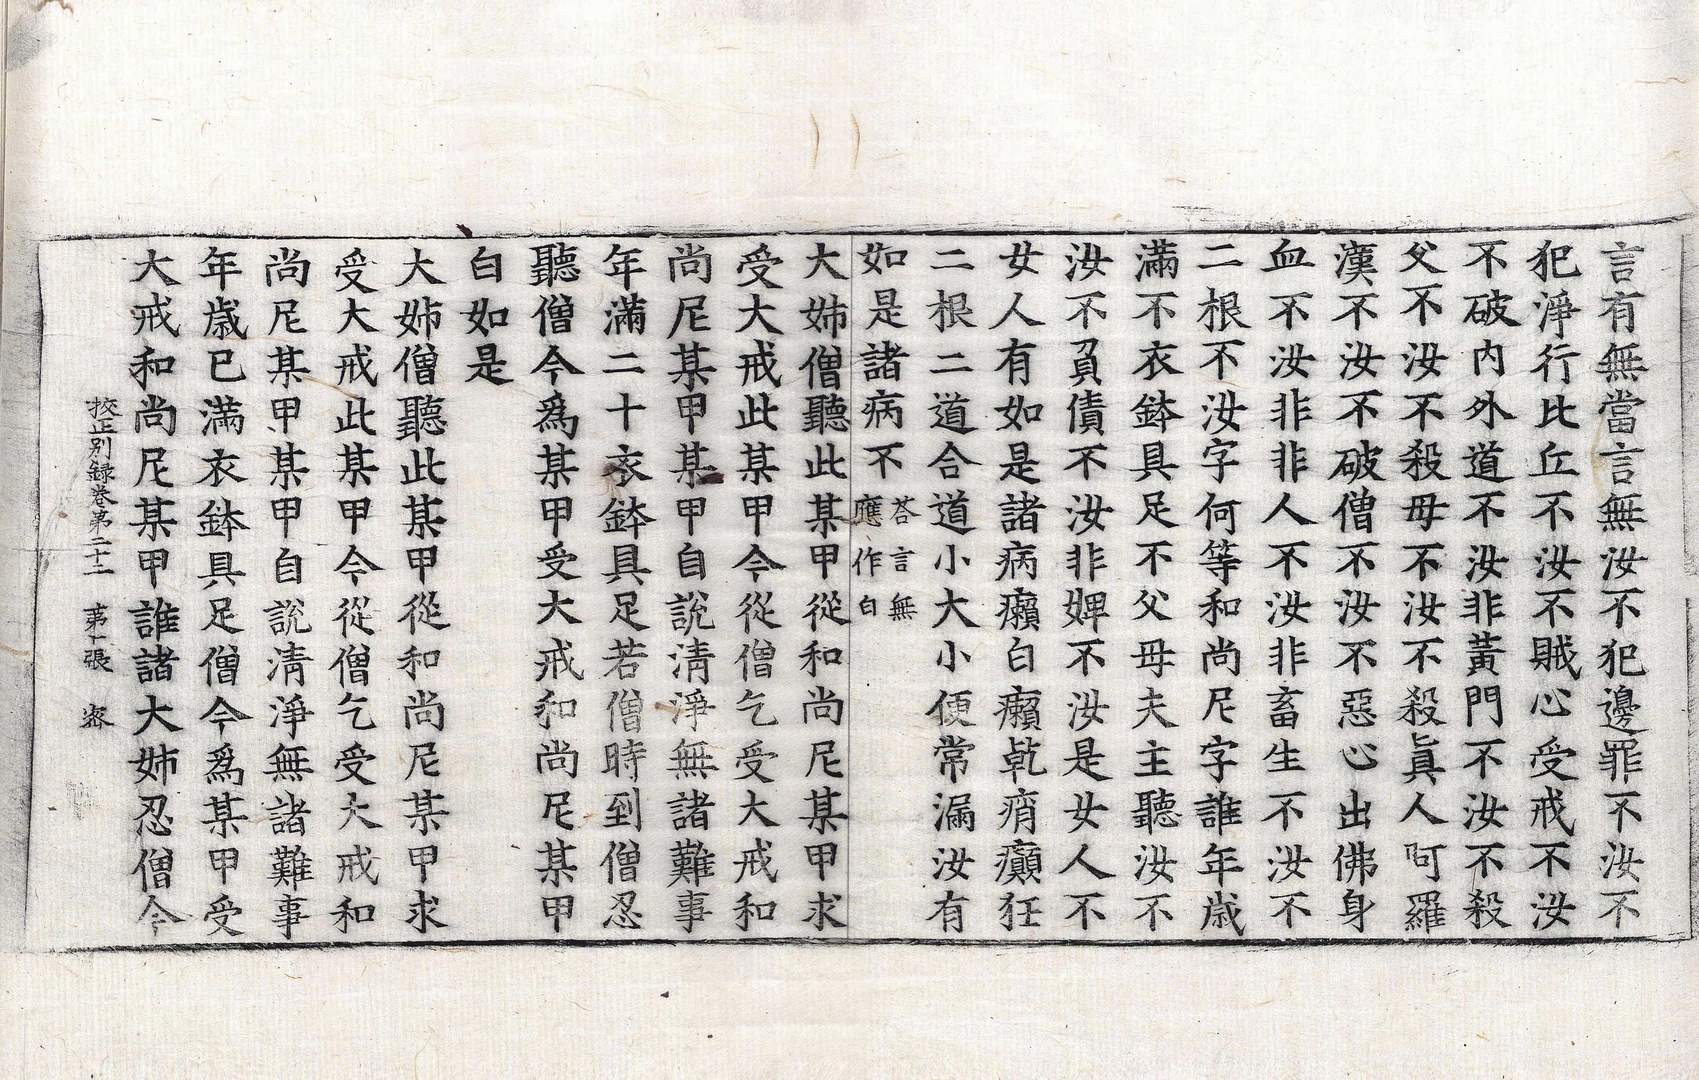 言有無當言無汝不犯邊罪不汝不
犯淨行比丘不汝不賊心受戒不汝
不破內外道不汝非黃門不汝不殺
父不汝不殺母不汝不殺眞人阿羅
漢不汝不破僧不汝不惡心出佛身
血不汝非非人不汝非畜生不汝不
二根不汝字何等和尚尼字誰年歲
滿不衣鉢具足不父母夫主聽汝不
汝不負債不汝非婢不汝是女人不
女人有如是諸病癩白癩乾痟癲狂
二根二道合道小大小便常漏汝有
如是諸病不
荅言無
應作白
大姉僧聽此某甲從和尚尼某甲求
受大戒此某甲今從僧乞受大戒和
尚尼某甲某甲自說清淨無諸難事
年滿二十衣鉢具足若僧時到僧忍
聽僧今爲某甲受大戒和尚尼某甲
白如是
大姉僧聽此某甲從和尚尼某甲求
受大戒此某甲今從僧乞受大戒和
尚尼某甲某甲自說清淨無諸難事
年歲已滿衣鉢具足僧今爲某甲受
大戒和尚尼某甲誰諸大姉忍僧今
挍正別録卷第二十一 第一張 密